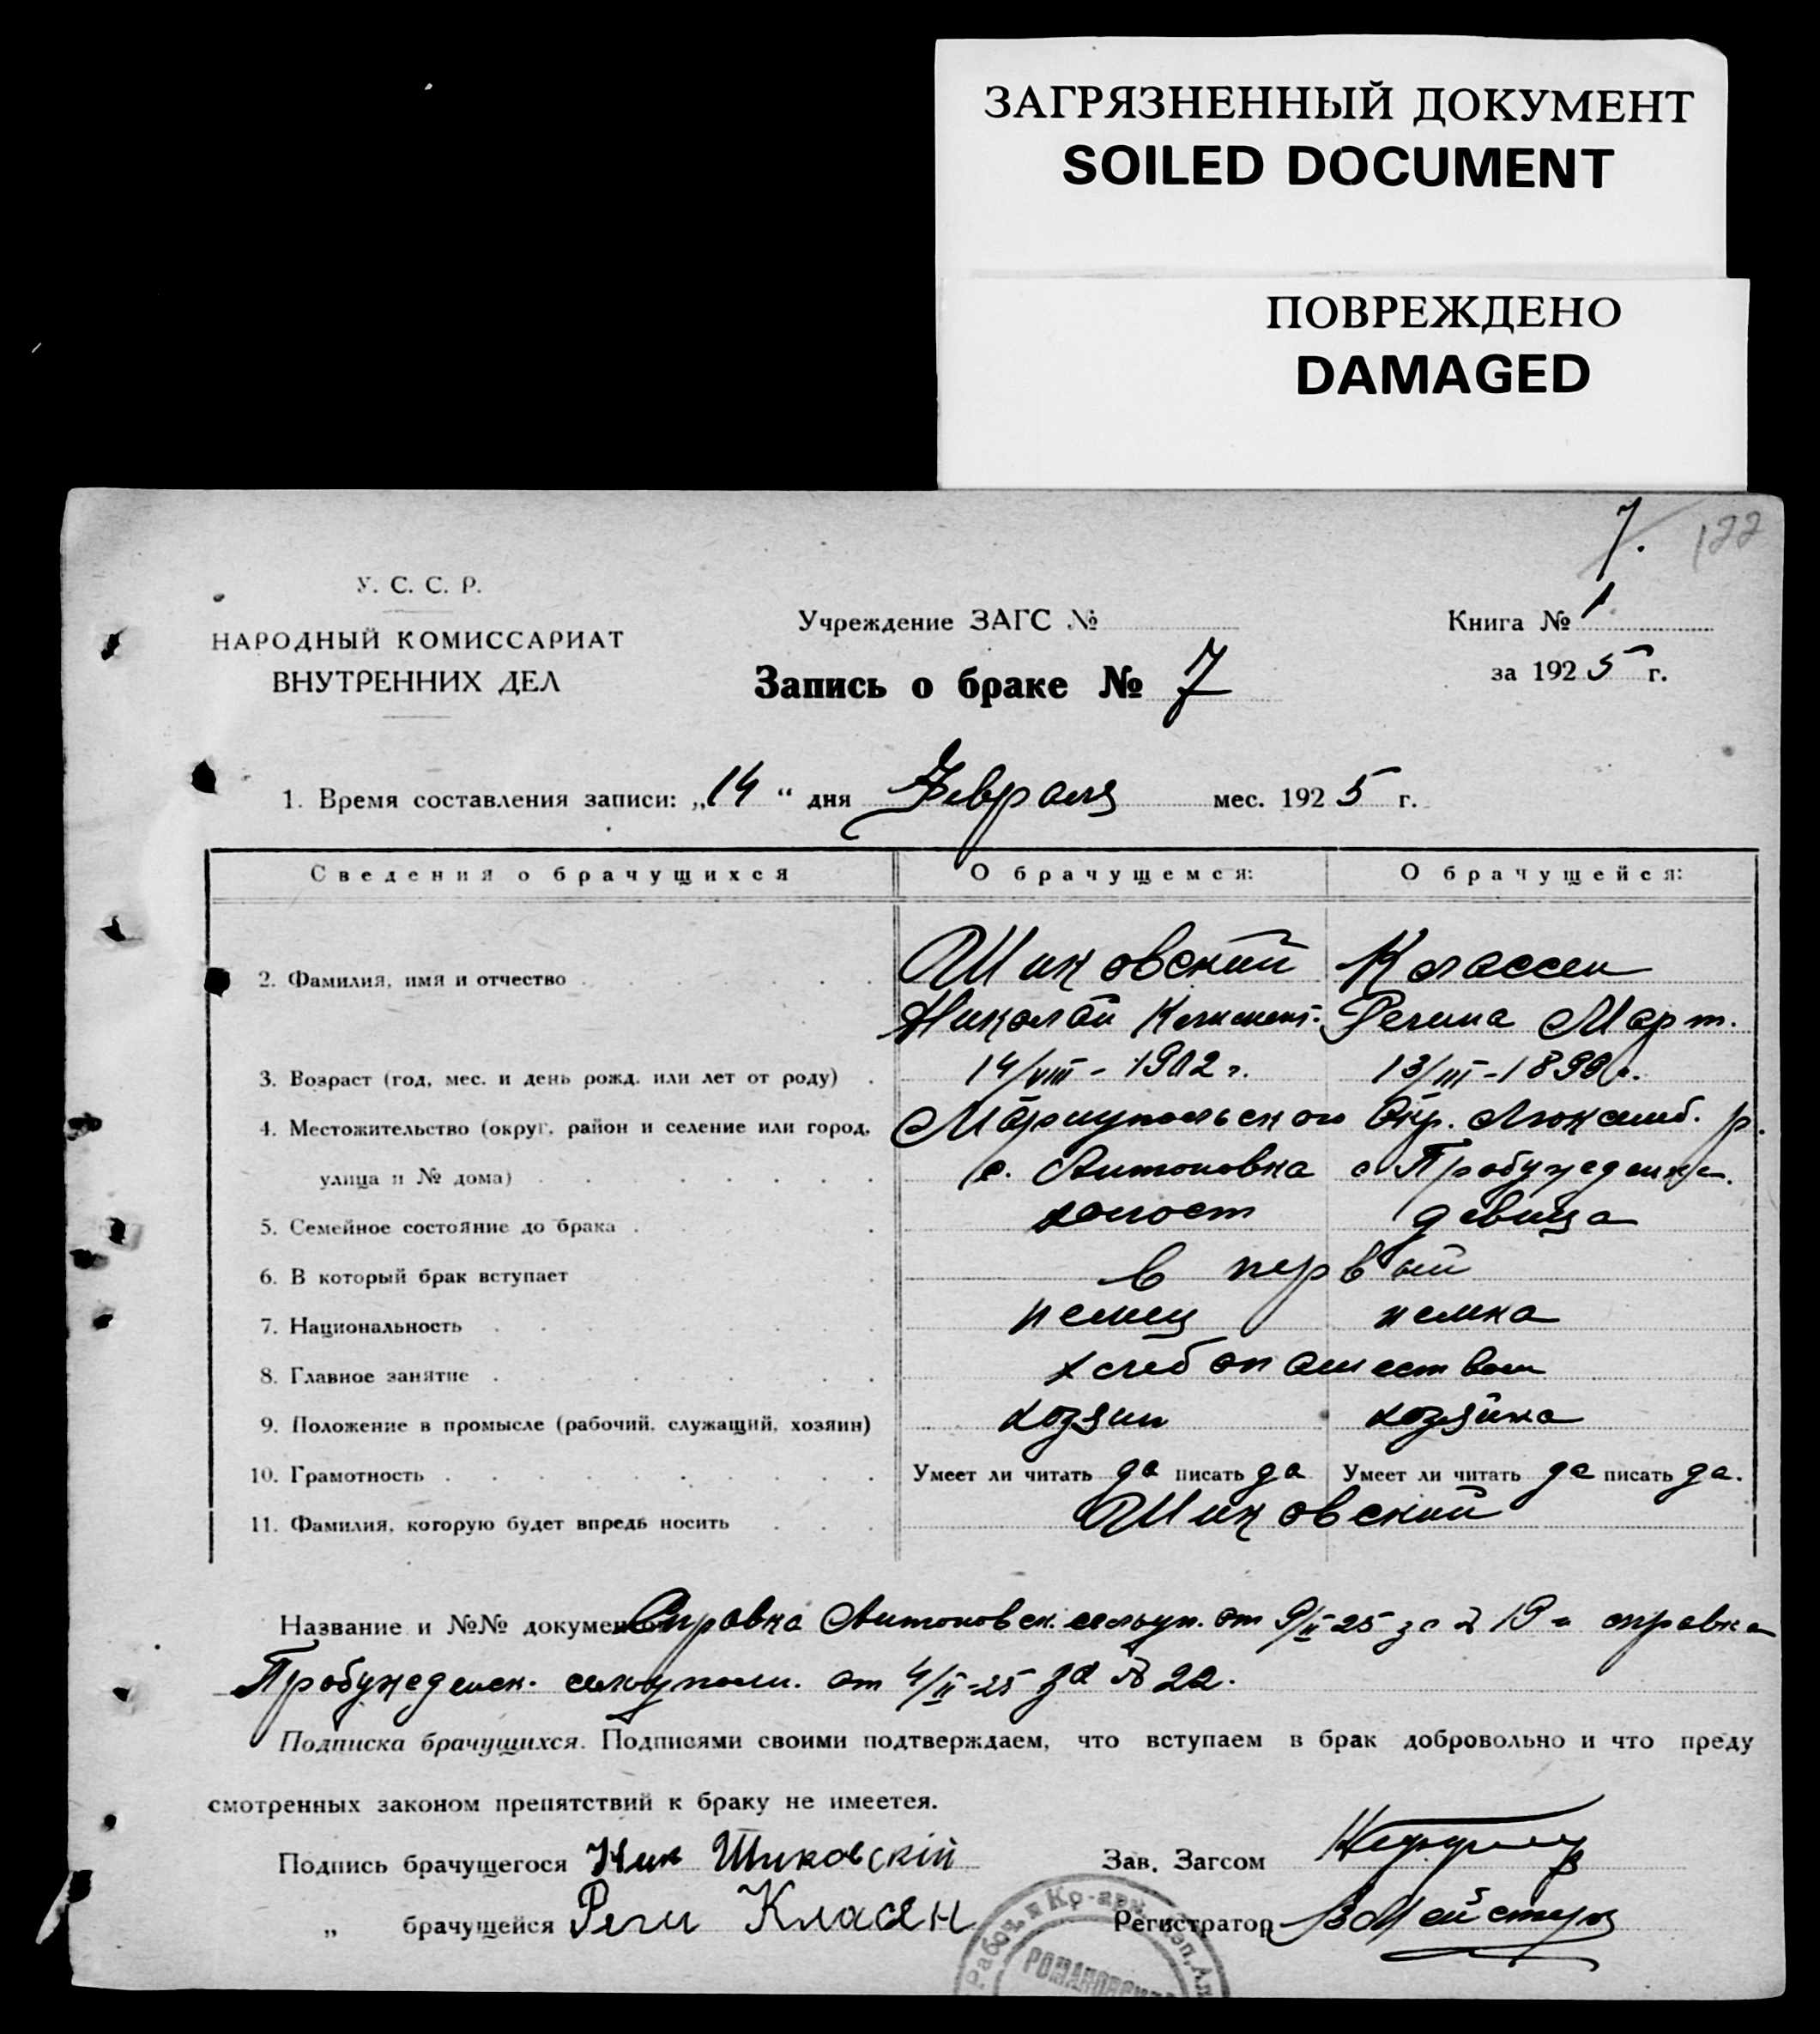 ЗАГРЯЗНЕННЫЙ ДОКУМЕНТ
SOILED DOCUMENT
ПОВРЕЖДЕНО
DAMAGED
7. 122
У. С. С. Р.
НАРОДНЫЙ КОМИССАРИАТ
ВНУТРЕННИХ ДЕЛ
Учреждение ЗАГС №
Запись о браке № 7
Книга № 1
за 1925 г.
1. Время составления записи: „14“ дня Февраля мес. 1925 г.
Сведения о брачущихся О брачущемся: О брачущейся:
2. Фамилия, имя и отчество Шиковский Классен
Николай Климент. Регина Март.
3. Возраст (год, мес. и день рожд. или лет от роду) 14/VIII - 1902 г. 13/III - 1899 г.
4. Местожительство (округ, район и селение или город, Мариупольского Окр. Люксемб. р.
улица и № дома) с. Антоновка с Пробужедение.
5. Семейное состояние до брака холост девица
6. В который брак вступает в первый
7. Национальность немец немка
8. Главное занятие хлебопашеством
9. Положение в промысле (рабочий, служащий, хозяин) хозяин хозяйка
10. Грамотность Умеет ли читать да писать да Умеет ли читать да писать да.
11. Фамилия, которую будет впредь носить Шиковский
Название и №№ документ Справка Антоновск. сельуп. от 9/II-25 за № 19 и справка
Пробужеденск. сельуполн. от 4/II-25 за № 22.
Подписка брачущихся. Подписями своими подтверждаем, что вступаем в брак добровольно и что преду
смотренных законом препятствий к браку не имеется.
Подпись брачущегося Ник Шиковскій
Зав. Загсом
„ брачущейся Реги Класен
Регистратор ВМейстер
Рабоч. и Кр-арм. Деп.
РОМАНОВСК